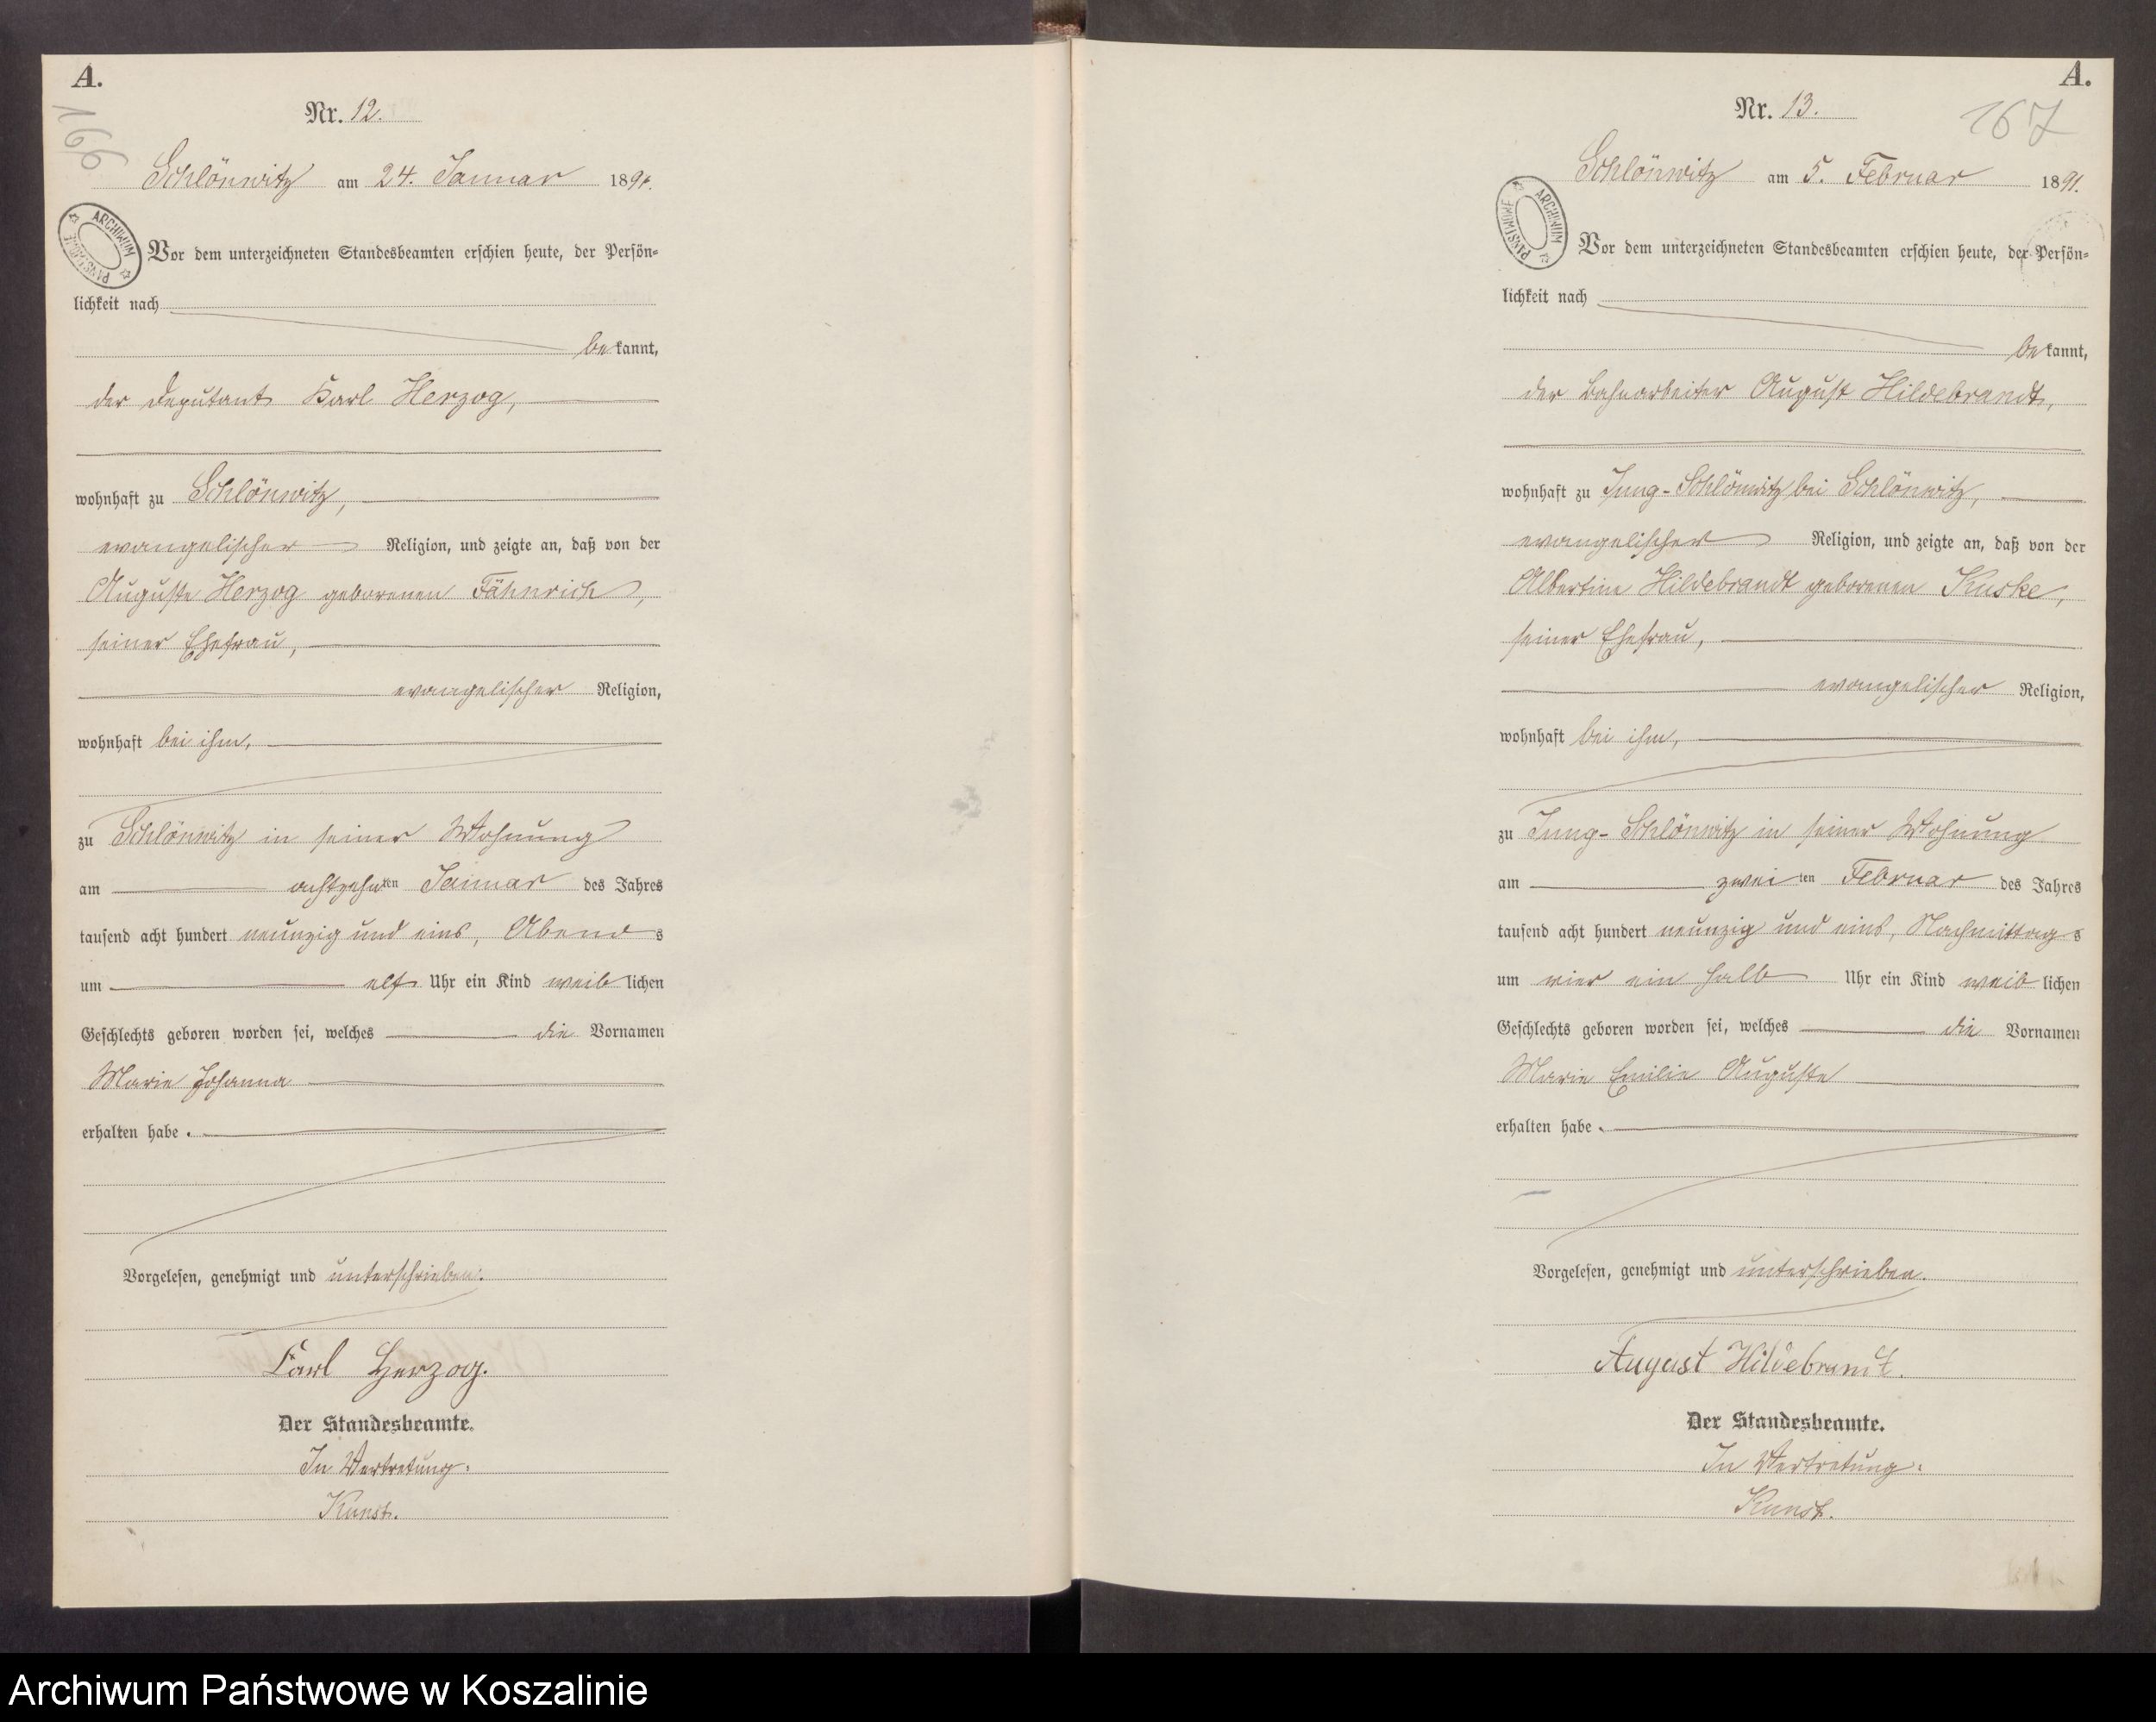 A.
166
Nr. 12.
Schlönwitz am 24. Januar 1891.
ARCHIWUM PAŃSTWOWE
Vor dem unterzeichneten Standesbeamten erschien heute, der Persön-
lichkeit nach
bekannt,
der Deputant Karl Herzog,
wohnhaft zu Schlönwitz,
evangelischer Religion, und zeigte an, daß von der
Auguste Herzog geborenen Fähnrich,
seiner Ehefrau,
evangelischer Religion,
wohnhaft bei ihm,
zu Schlönwitz in seiner Wohnung
am achtzehnten Januar des Jahres
tausend acht hundert neunzig und eins, Abends
um elf Uhr ein Kind weiblichen
Geschlechts geboren worden sei, welches die Vornamen
Marie Johanna
erhalten habe.
Vorgelesen, genehmigt und unterschrieben.
Carl Herzog.
Der Standesbeamte.
In Vertretung:
Kunst.
A.
167
Nr. 13.
Schlönwitz am 5. Februar 1891.
ARCHIWUM PAŃSTWOWE
Vor dem unterzeichneten Standesbeamten erschien heute, der Persön-
lichkeit nach
bekannt,
der Bahnarbeiter August Hildebrandt,
wohnhaft zu Jung-Schlönwitz bei Schlönwitz,
evangelischer Religion, und zeigte an, daß von der
Albertine Hildebrandt geborenen Kuske,
seiner Ehefrau,
evangelischer Religion,
wohnhaft bei ihm,
zu Jung-Schlönwitz in seiner Wohnung
am zweiten Februar des Jahres
tausend acht hundert neunzig und eins, Nachmittags
um vier ein halb Uhr ein Kind weiblichen
Geschlechts geboren worden sei, welches die Vornamen
Marie Emilie Auguste
erhalten habe.
Vorgelesen, genehmigt und unterschrieben.
August Hildebrandt.
Der Standesbeamte.
In Vertretung:
Kunst.
Archiwum Państwowe w Koszalinie